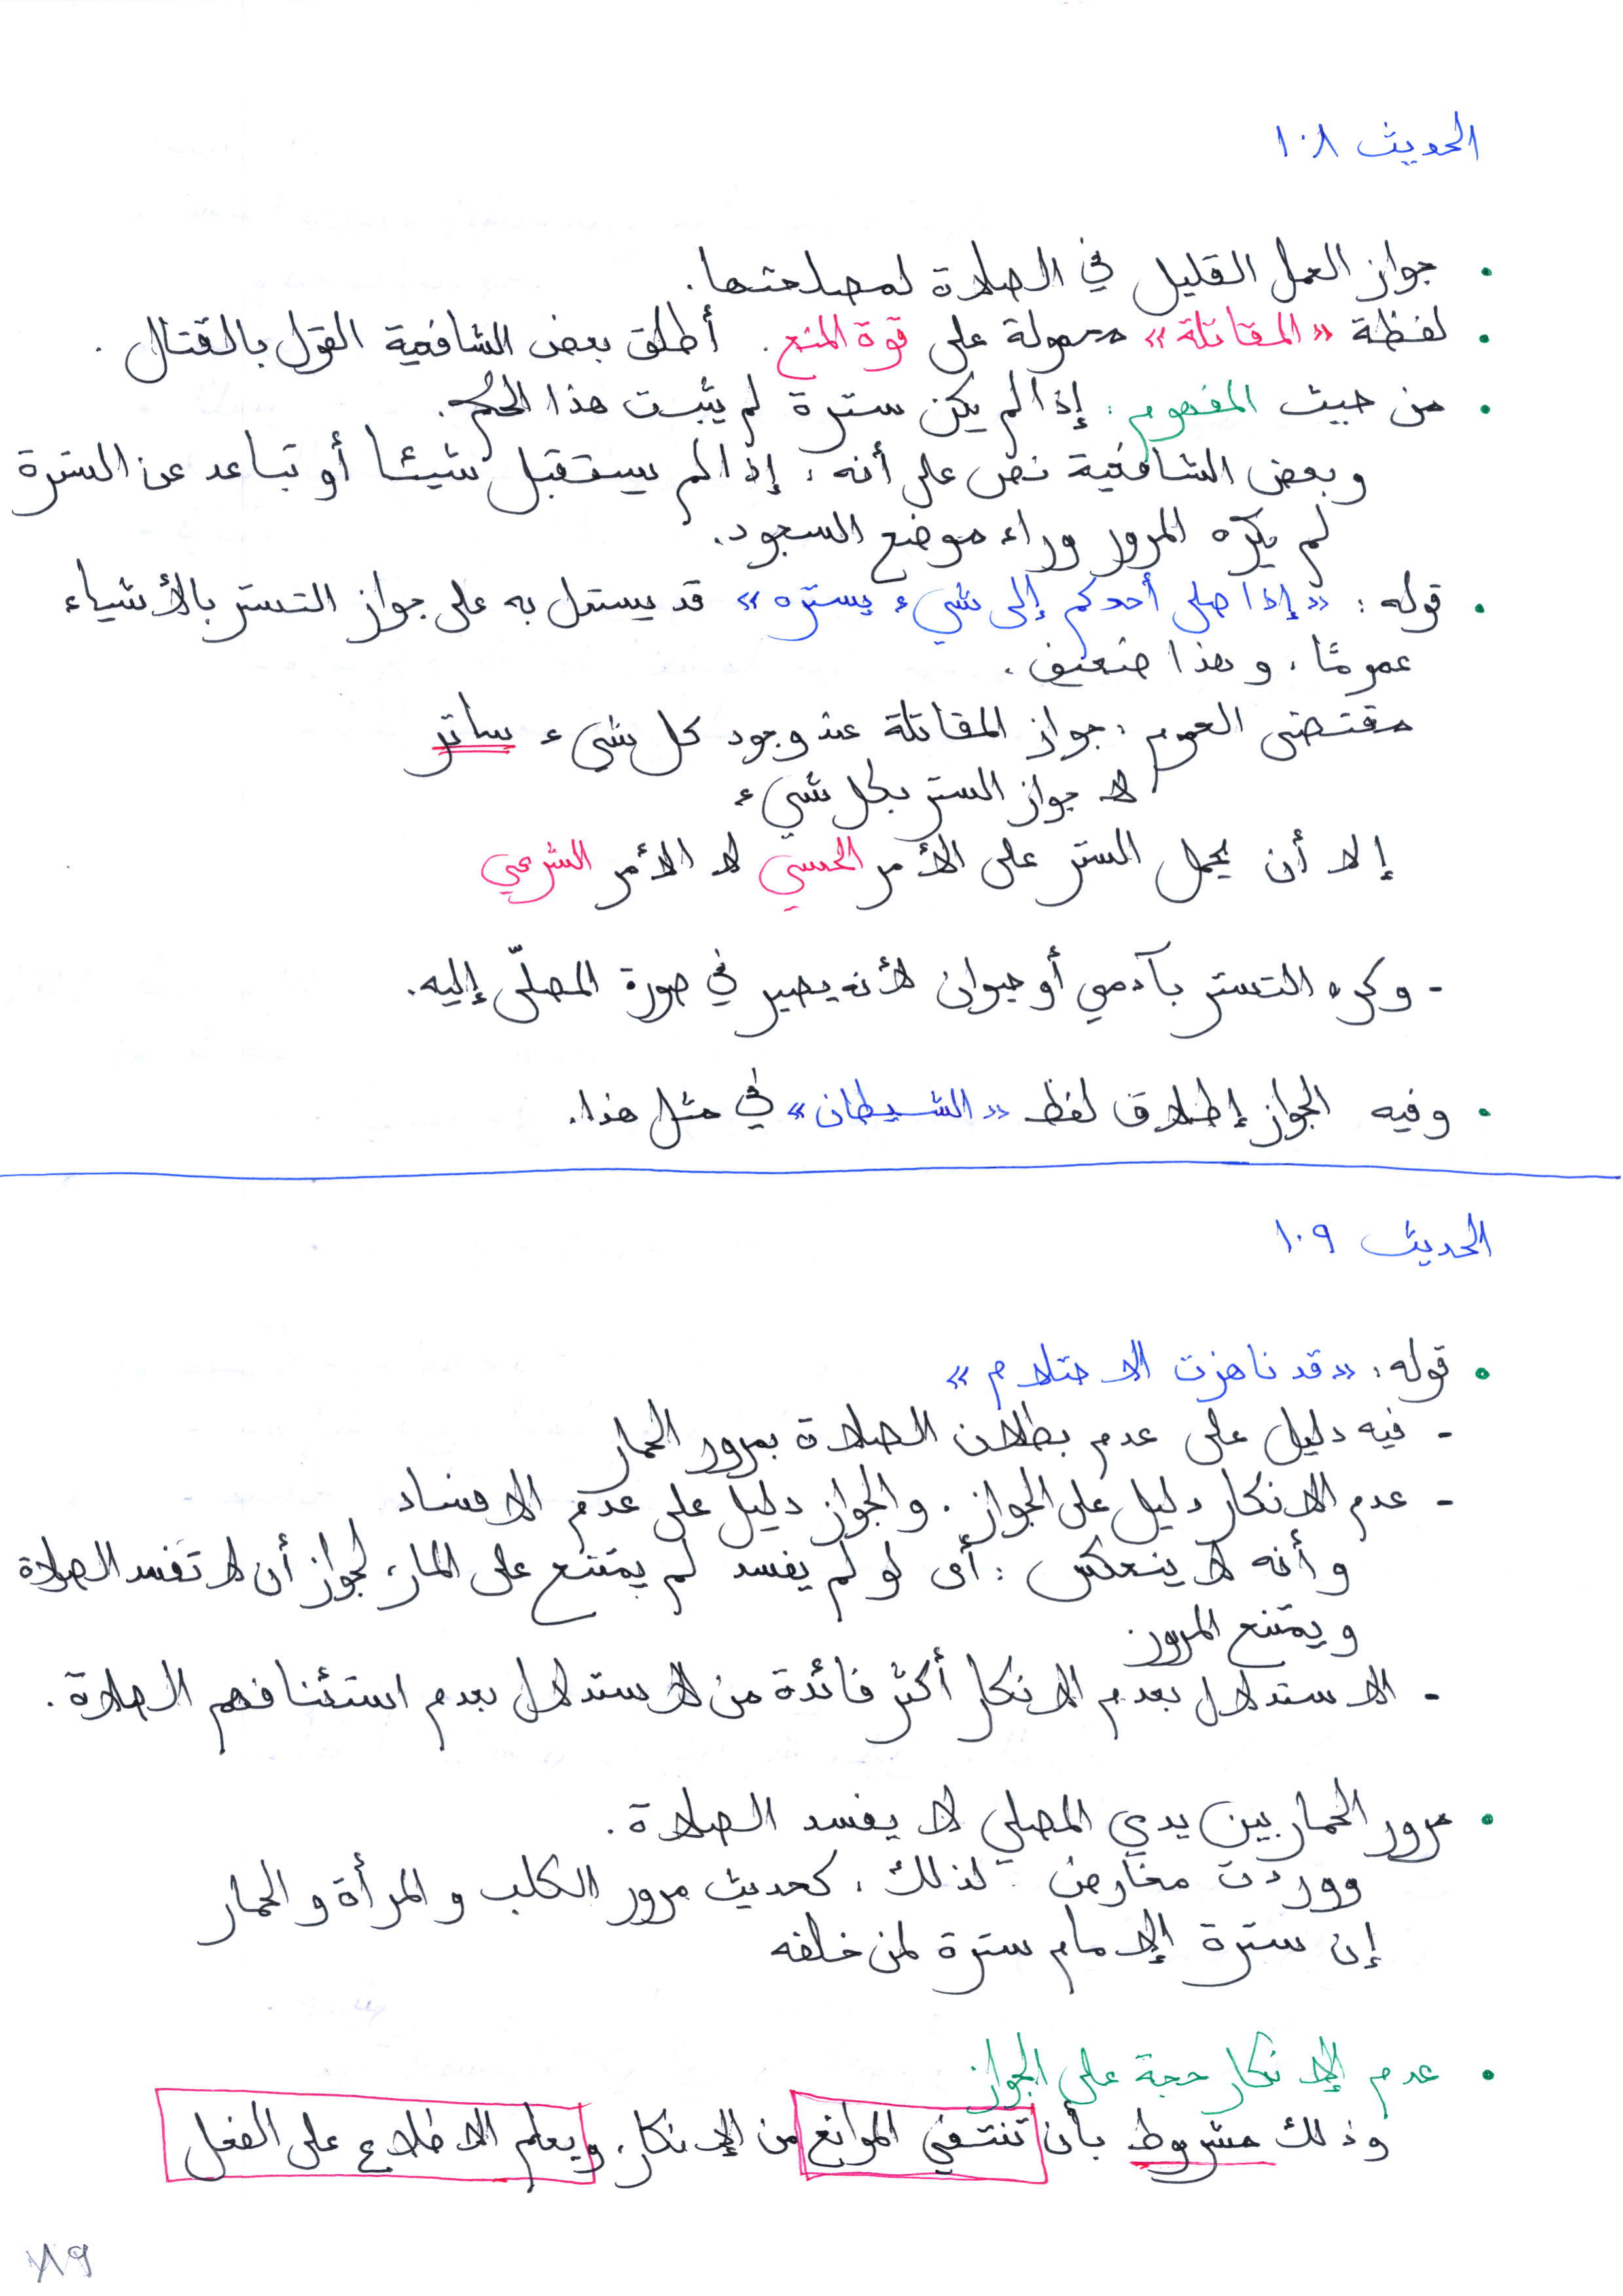 الحديث ١٠٨
• جواز العمل القليل في الصلاة لمصلحتها.
• لفظة «المقاتلة» محمولة على قوة المنع. أطلق بعض الشافعية القول بالقتال.
• من حيث المفهوم: إذا لم يكن سترة لم يثبت هذا الحكم.
وبعض الشافعية نص على أنه: إذا لم يستقبل شيئا أو تباعد عن السترة
لم يكره المرور وراء موضع السجود.
• قوله: «إذا صلى أحدكم إلى شيء يستره» قد يستدل به على جواز التستر بالأشياء
عمومًا، وهذا ضعيف.
مقتضى العموم: جواز المقاتلة عند وجود كل شيء ساتر
لا جواز الستر بكل شيء
إلا أن يحمل الستر على الأمر الحسي لا الأمر الشرعي
- وكره التستر بآدمي أو حيوان لأنه يصير في صورة المصلّى إليه.
• وفيه الجواز إطلاق لفظ «الشيطان» في مثل هذا.
الحديث ١٠٩
• قوله: «قد ناهزت الاحتلام»
- فيه دليل على عدم بطلان الصلاة بمرور الحمار
- عدم الانكار دليل على الجواز. والجواز دليل على عدم الافساد
وأنه لا ينعكس: أى لو لم يفسد لم يمتنع على المار، لجواز أن لا تفسد الصلاة
ويمتنع المرور.
- الاستدلال بعدم الانكار أكثر فائدة من الاستدلال بعدم استئنافهم الصلاة.
• مرور الحمار بين يدي المصلي لا يفسد الصلاة.
ووردت معارض لذلك، كحديث مرور الكلب والمرأة والحمار
إن سترة الإمام سترة لمن خلفه
• عدم الإنكار حجة على الجواز
وذلك مشروط بأن تنتفي الموانع من الإنكار، ويعلم الاطلاع على الفعل